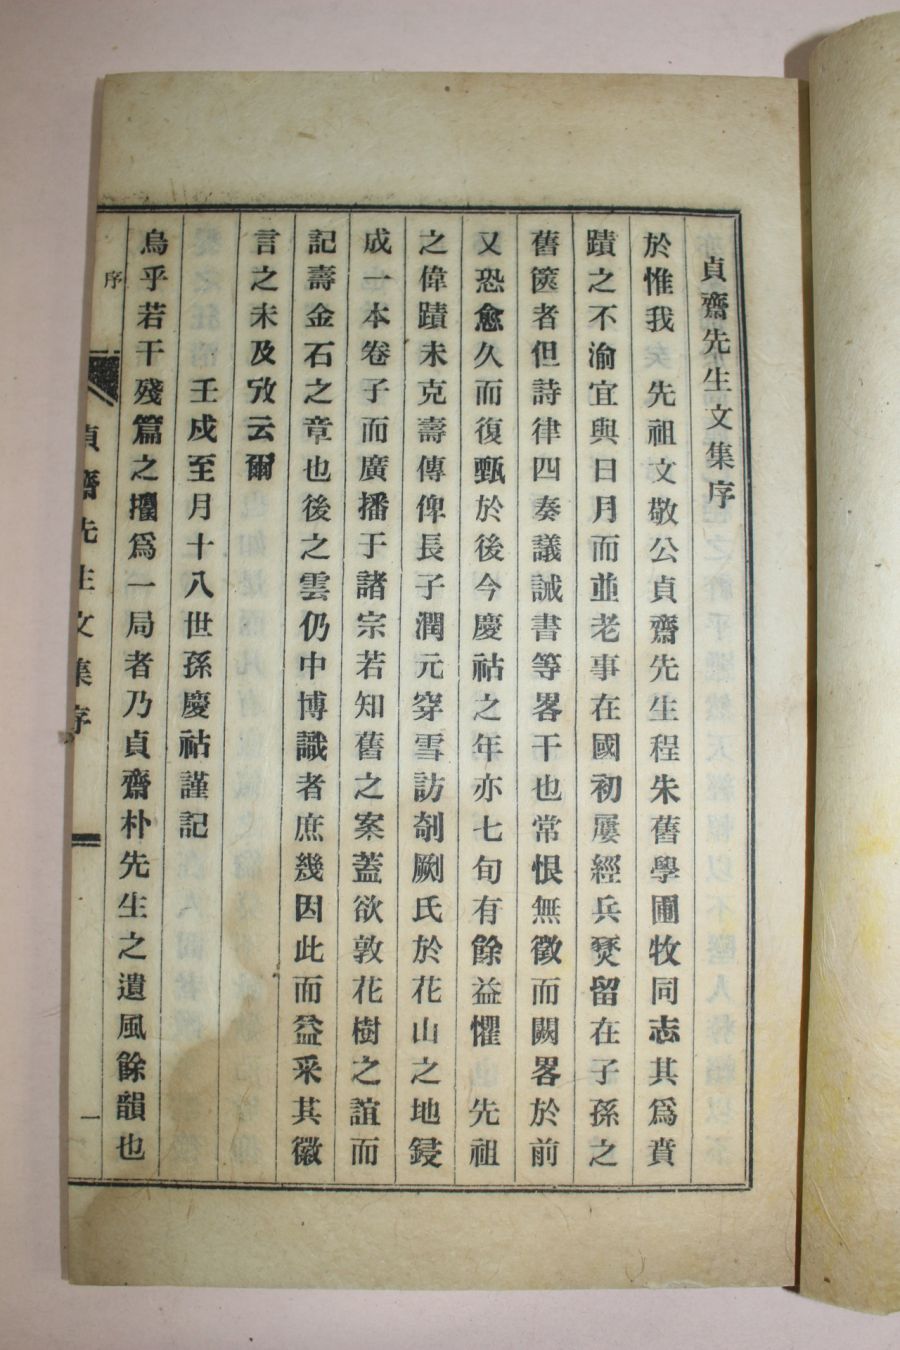 貞齋先生文集序
於惟我 先祖文敬公貞齋先生程朱舊學圃牧同志其爲賁
蹟之不渝宜與日月而並老事在國初屢經兵燹留在子孫之
舊篋者但詩律四奏議誠書等畧干也常恨無徵而闕畧於前
又恐愈久而復甄於後今慶祜之年亦七旬有餘益懼 先祖
之偉蹟未克壽傳俾長子潤元穿雪訪剞劂氏於花山之地鋟
成一本卷子而廣播于諸宗若知舊之案蓋欲敦花樹之誼而
記壽金石之章也後之雲仍中博識者庶幾因此而益采其徽
言之未及攷云爾
壬戌至月十八世孫慶祜謹記
烏乎若干殘篇之爲一局者乃貞齋朴先生之遺風餘韻也
序
貞齋先生文集序
一